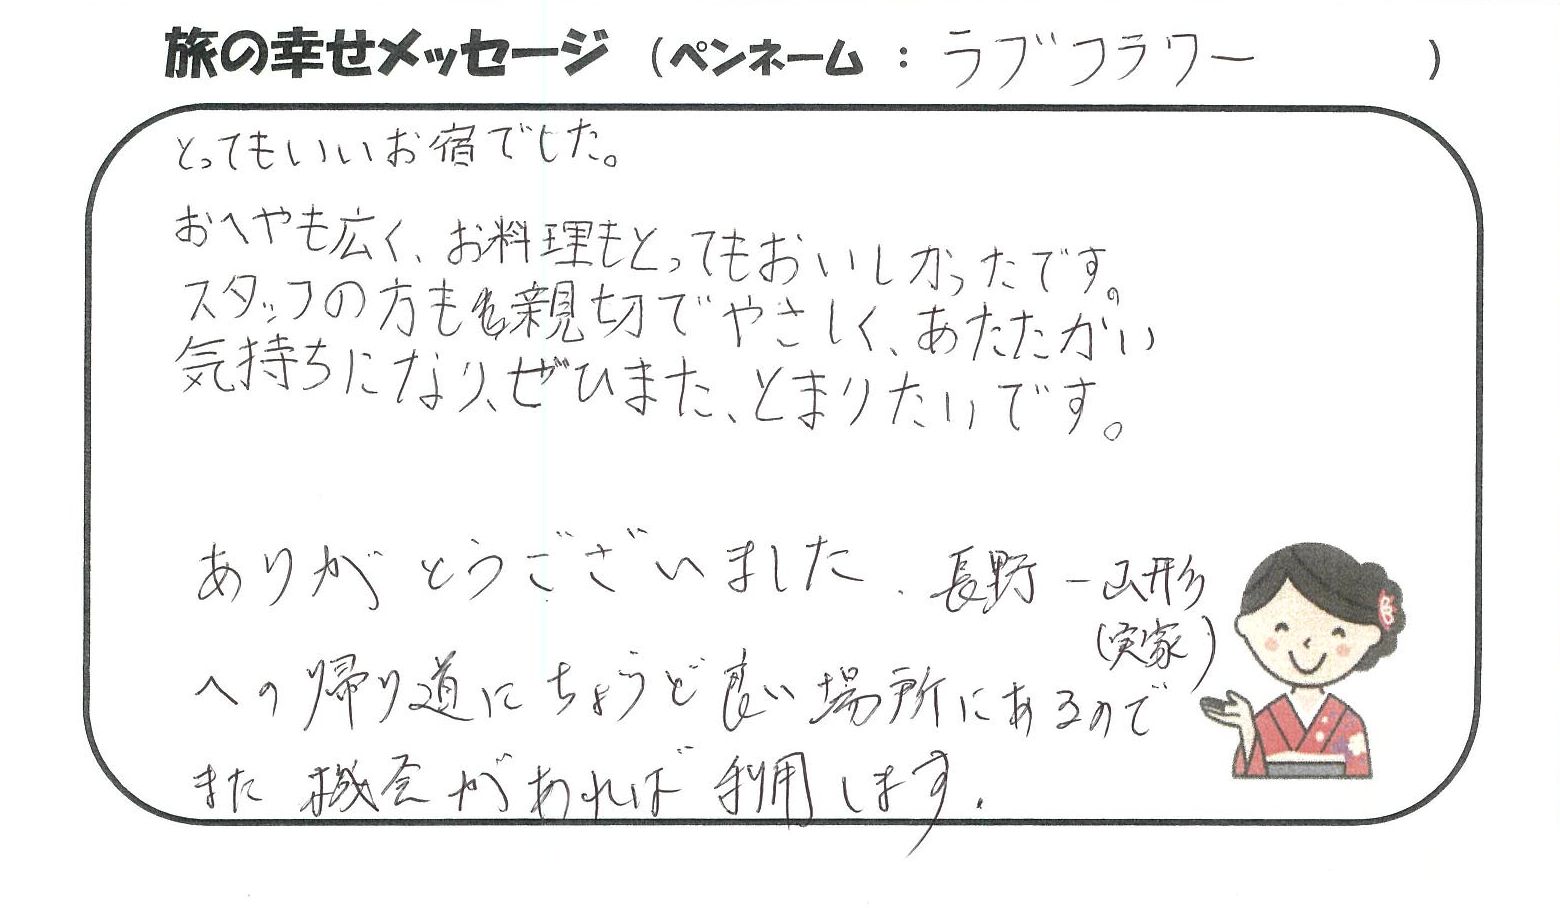 旅の幸せメッセージ (ペンネーム : ラブフラワー )
とってもいいお宿でした。
おへやも広く、お料理もとってもおいしかったです。
スタッフの方も親切でやさしく、あたたかい
気持ちになり、ぜひまた、とまりたいです。
ありがとうございました. 長野 ー 山形
(実家)
への帰り道にちょうど良い場所にあるので
また機会があれば利用します.